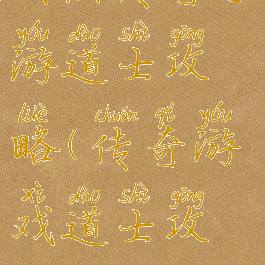 yóu dào shì gōng
游道士攻
lüè chuán qí yóu
略(传奇游
xì dào shì gōng
戏道士攻